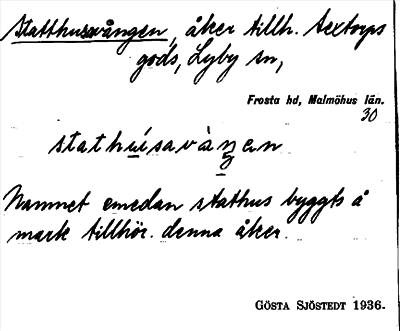 Statthusavången, åker tillh. Sextorps
gods, Lyby sn,
Frosta hd, Malmöhus län.
30
stathu̲ísavàŋ̲ən
Namnet emedan stathus byggts å
mark tillhör. denna åker.
GÖSTA SJÖSTEDT 1936.